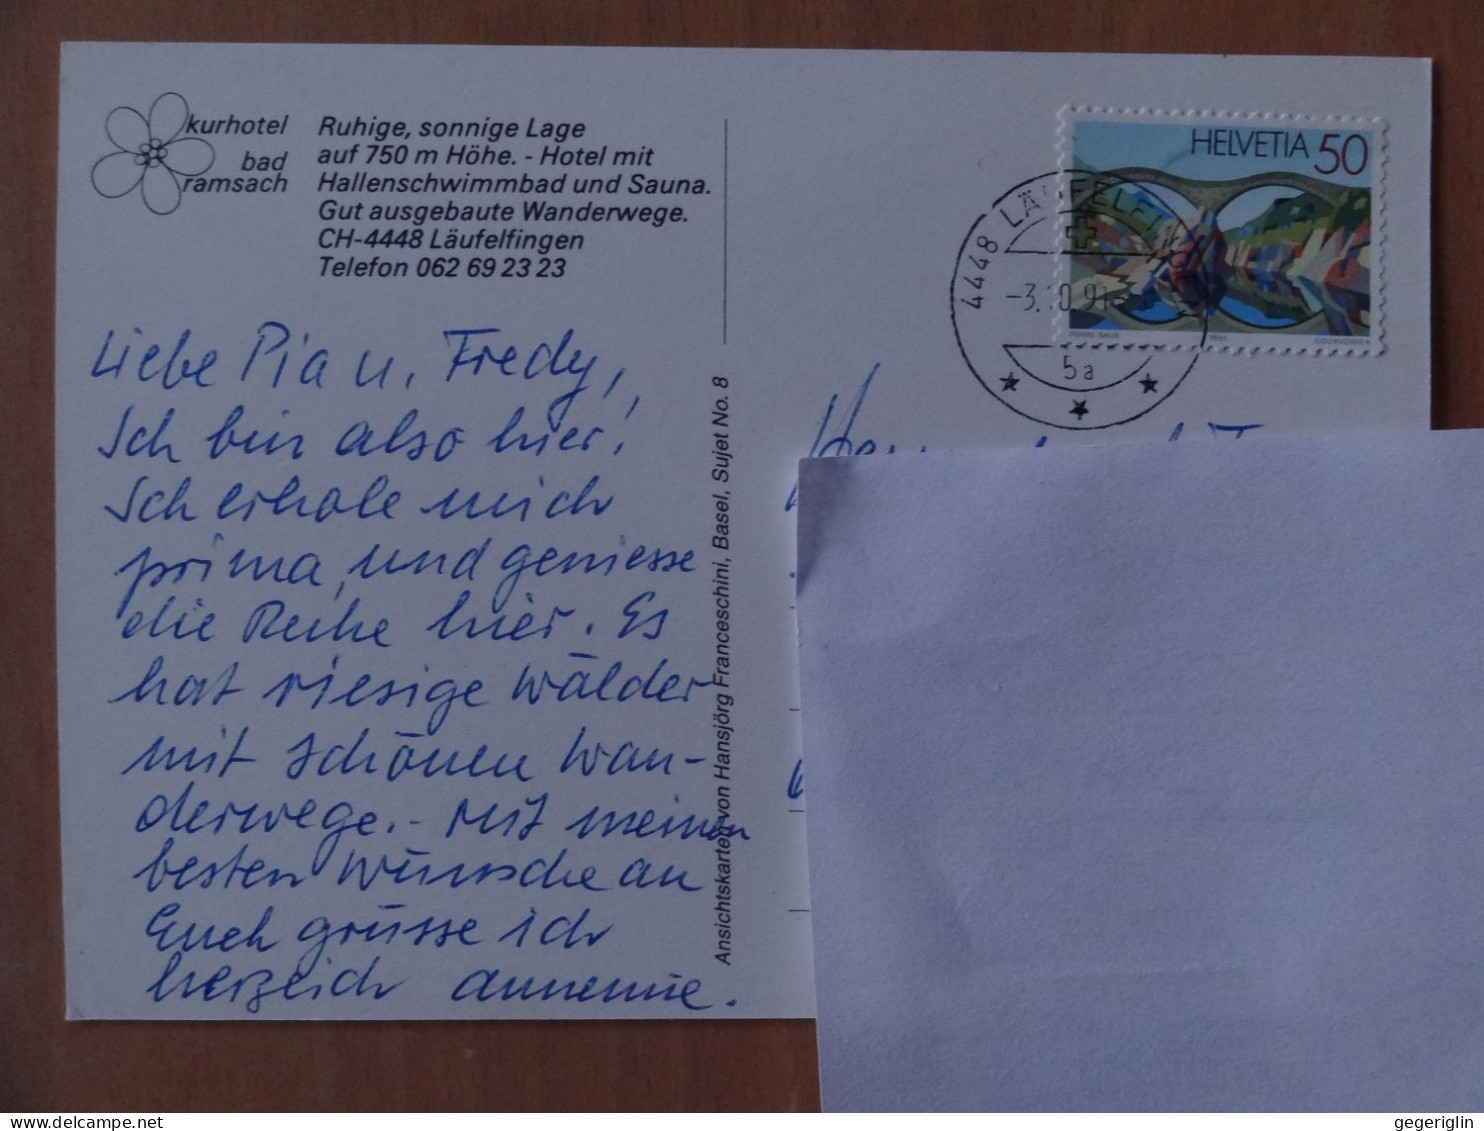 kurhotel
bad
ramsach
Ruhige, sonnige Lage
auf 750 m Höhe. - Hotel mit
Hallenschwimmbad und Sauna.
Gut ausgebaute Wanderwege.
CH-4448 Läufelfingen
Telefon 062 69 23 23
Liebe Pia u. Fredy,
Ich bin also hier!
Ich erhole mich
prima, und geniesse
die Ruhe hier. Es
hat riesige Wälder
mit schönen Wan-
derwege.- Mit meinen
besten Wünsche an
Euch grüsse ich
herzlich Annemie.
Ansichtskarten von Hansjörg Franceschini, Basel, Sujet No. 8
HELVETIA 50
1991
COURVOISIER
4448 LÄUFELFI
-3.10.91-
5a
gegeriglin